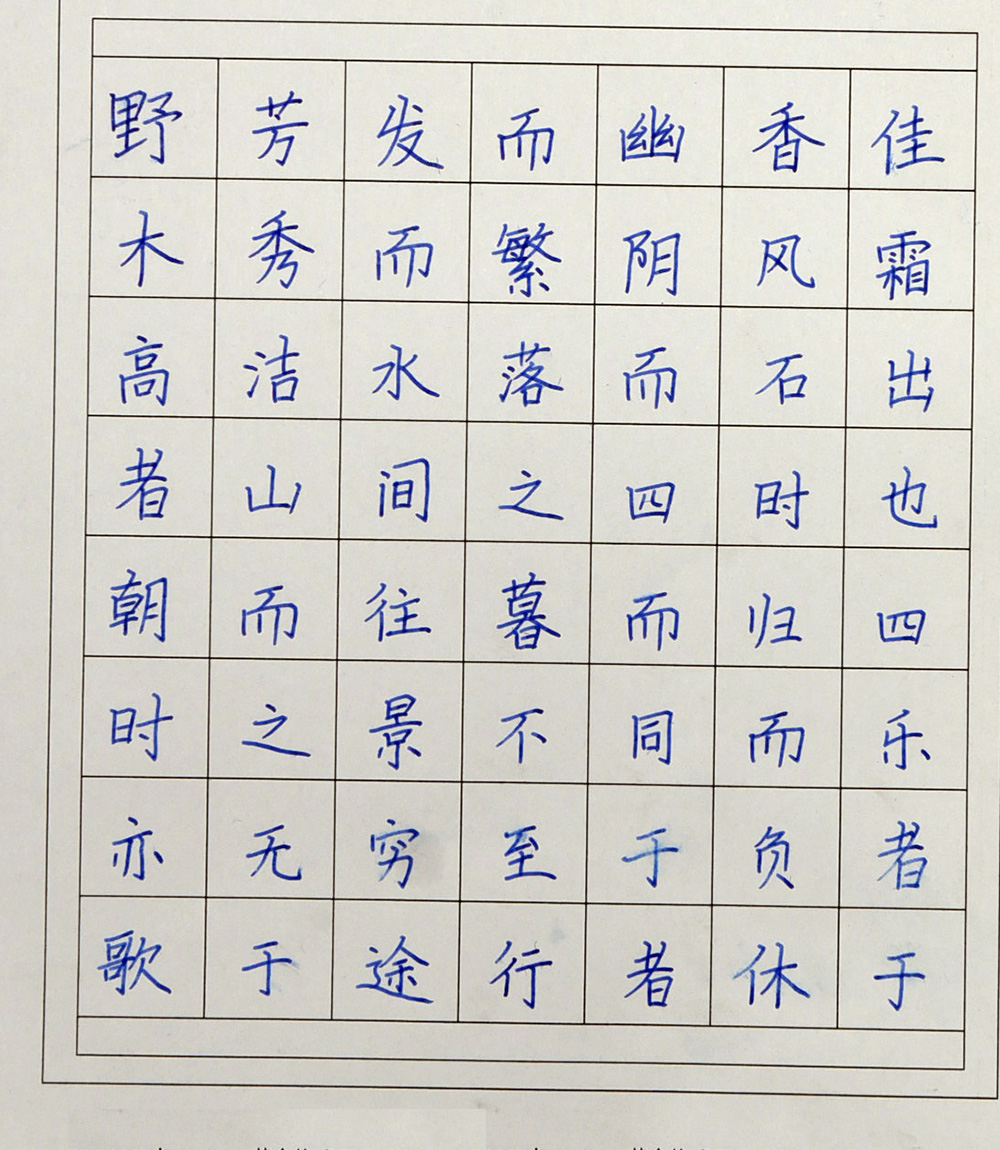 野芳发而幽香佳
木秀而繁阴风霜
高洁水落而石出
者山间之四时也
朝而往暮而归四
时之景不同而乐
亦无穷至于负者
歌于途行者休于